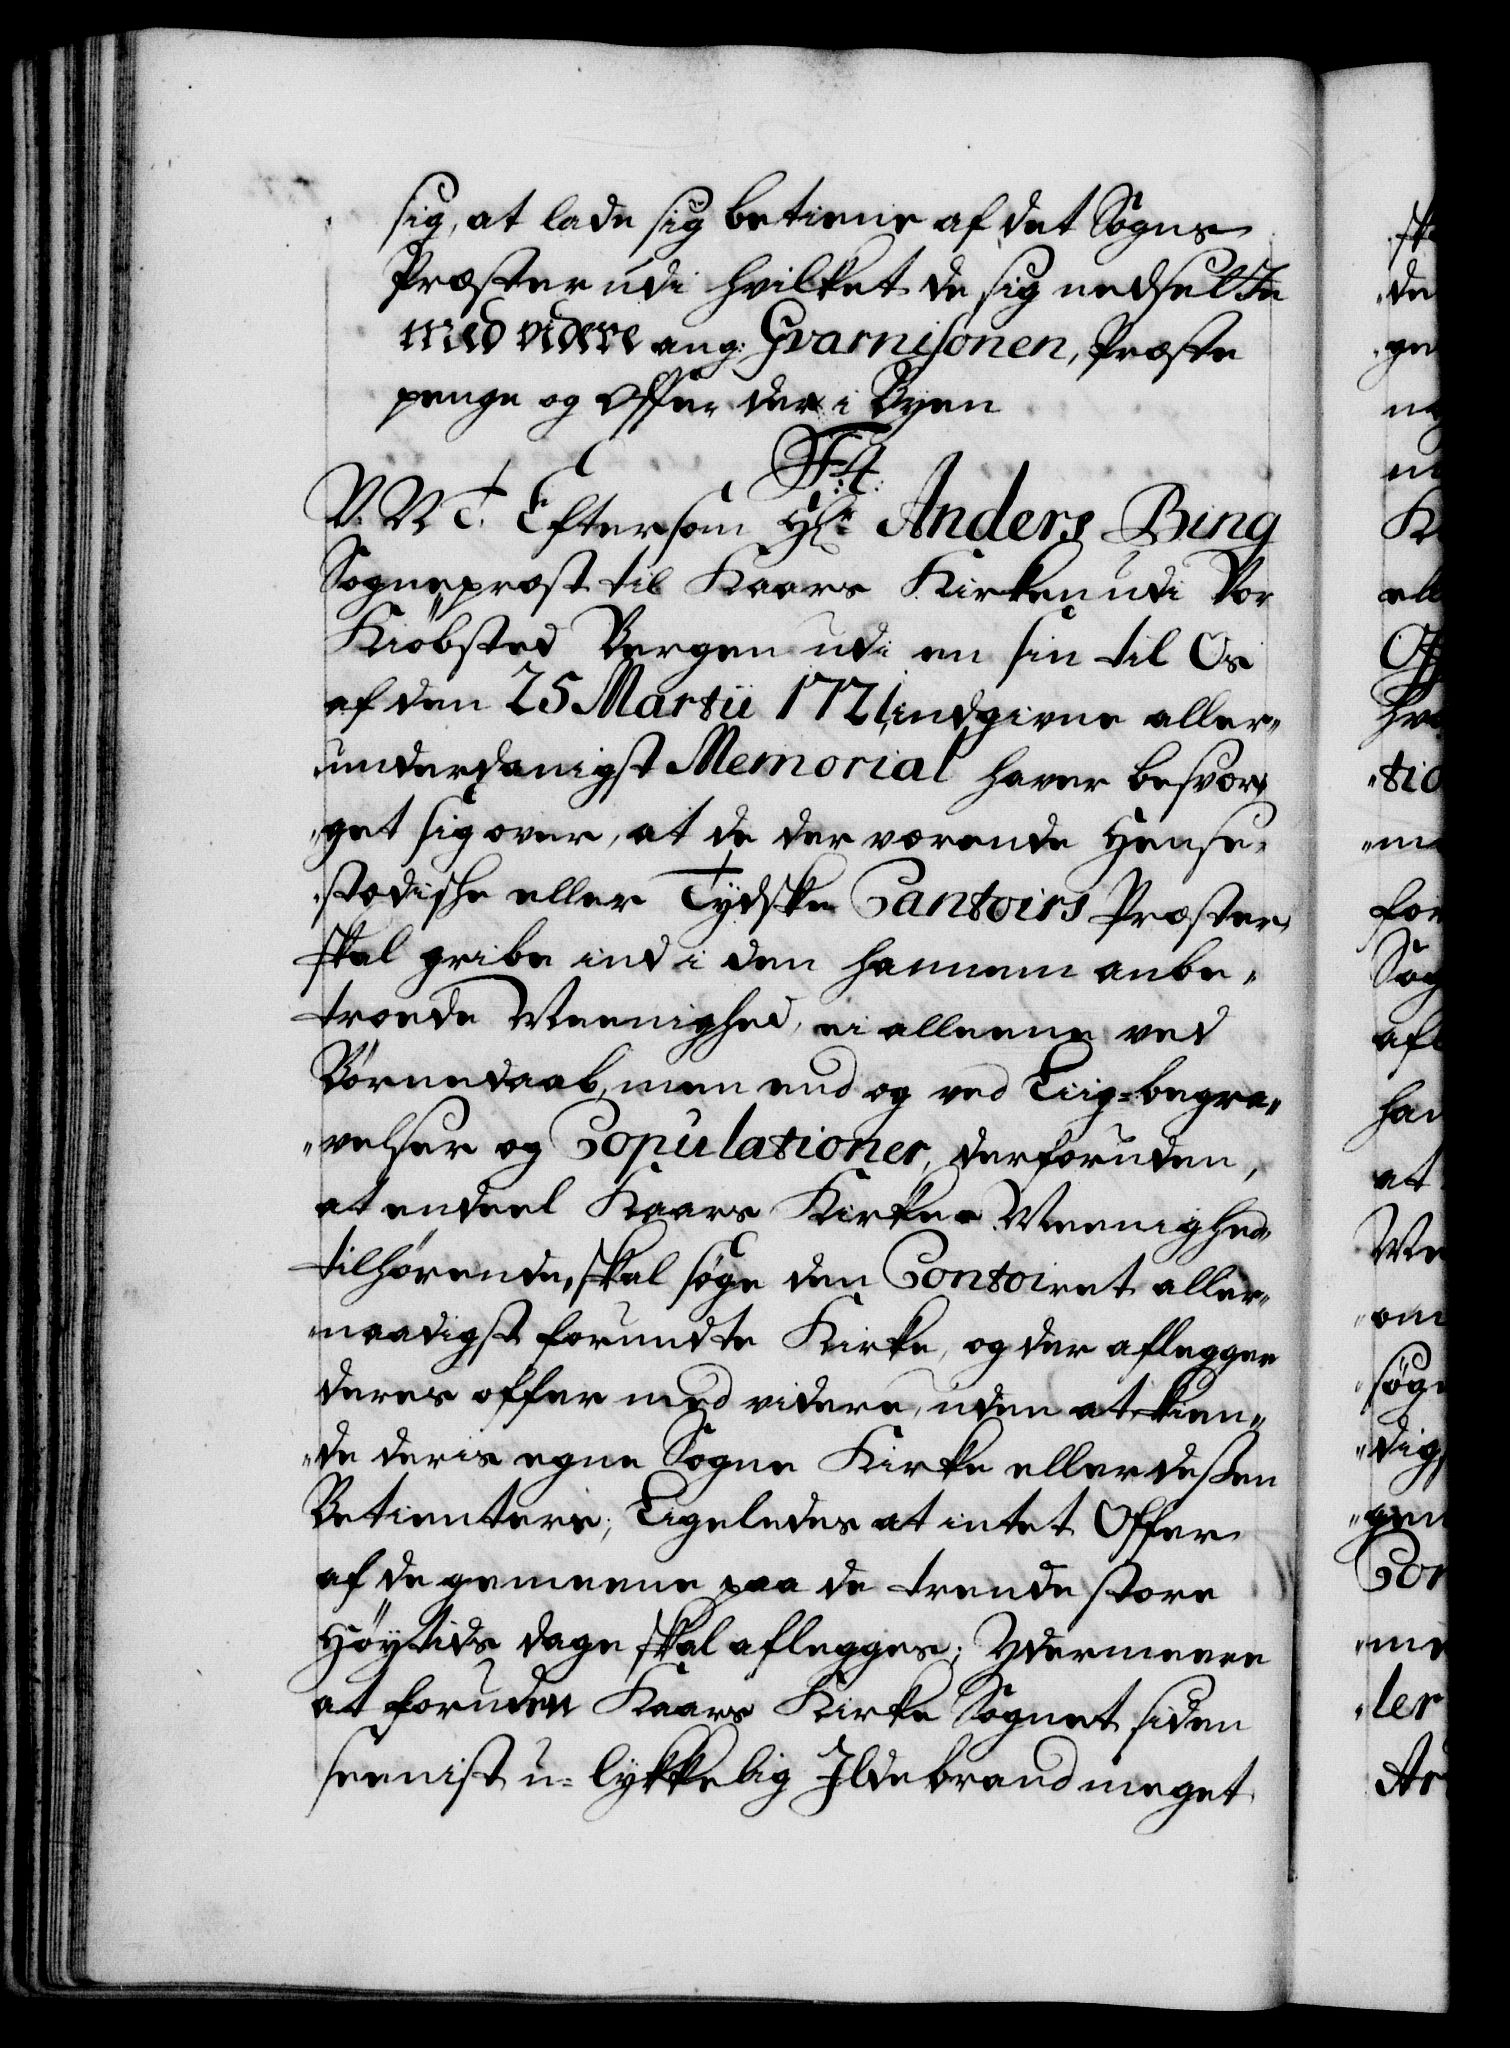 sig, at lade sig betiene af det Sogns
Præster udi hvilket de sig nedsette
med videre ang: Gvarnisonen, Præste
penge og Offer der i Byen
F4.
V. N T. Eftersom Hr. Anders Bing
Sognepræst til Kaars Kirken udi Vor
Kiöbsted Bergen udi en sin til Os
af den 25 Martii 1721 indgivne aller-
underdanigst Memorial haver besvær-
get sig over, at de der værende Hense-
stædische eller Tydske Cantoirs Præster
skal gribe ind i den hannem anbe-
troede Meenighed, ei alleene ved
Börnedaab, men end og ved Liig-begra-
velser og Copulationer, derforuden,
at endeel Kaars Kirkes Meenighed
tilhörende, skal söge den Contoiret aller-
naadigst forundte Kirke, og der aflegge
deres offer med videre, uden at kien-
de deris egne Sogne Kirke eller dessen
Betientere; Ligeledes at intet Offer
af de gemeene paa de trende store
Höytids dage skal aflegges; Ydermeere
at foruden Kaars Kirke Sognet siden
seenist u-lykkelig Ildebrand meget